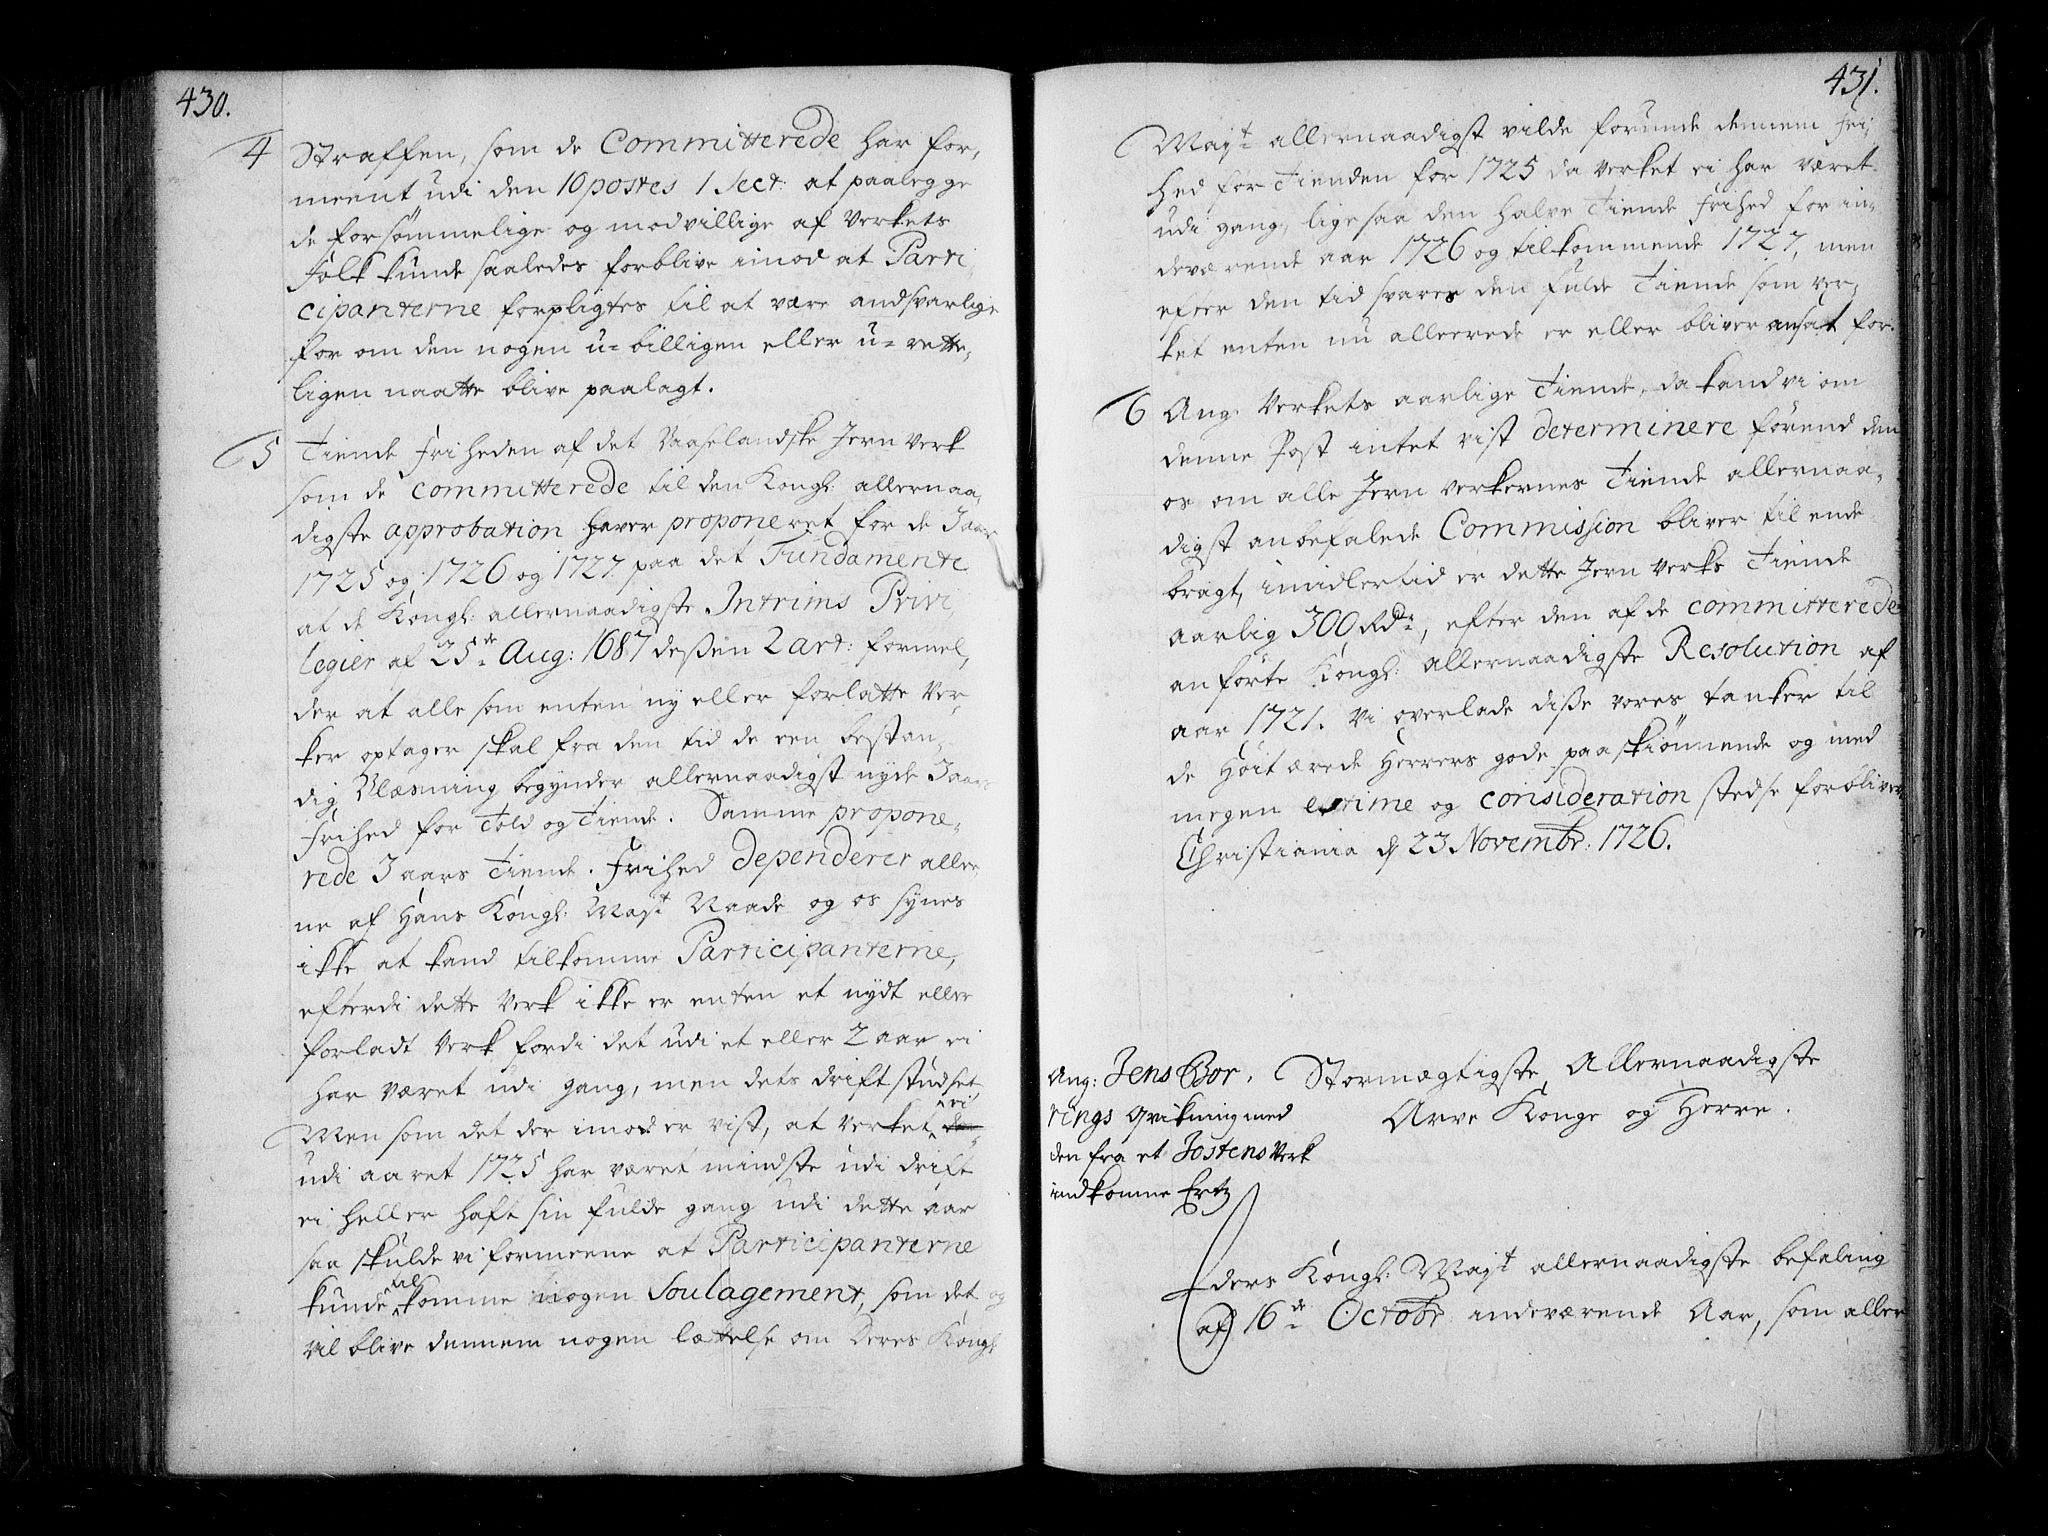 430.
4 Straffen, som de Committerede har for,
meent udi den 10 postes 1 Sect: at paalegge
de forsömmelige og modvillige af Verkets
folk kunde saaledes forblive imod at Parti,
cipanterne forpligtes til at være andsvarlige
for om den nogen u-billigen eller u-rette,
ligen maatte blive paalagt.
5 Tiende friheden af det Baaselandske Jern Verk
som de committerede til den Kongl: allernaa,
digste approbation haver proponeret for de 3 aar
1725 og 1726 og 1727 paa det Fundamente
at de Kongl: allernaadigste Intrims Privi,
legier af 25de Aug: 1687 dessen 2 art: formel,
der at alle som enten ny eller forlatte Ver,
ker optager skal fra den tid de een bestan,
dig Blæsning begynder allernaadigst nyde 3 aars
frihed for Told og Tiende. Samme propone,
rede 3 aars Tiende. frihed dependerer alle
ne af Hans Kongl: Mayt Naade og os synes
ikke at kand tilkomme Participanterne,
efterdi dette Verk ikke er enten et nydt eller
forladt Verk fordi det udi et eller 2 aar ei
har været udi gang, men dets drift studset
Men som det der imod er vist, at Verket ei
udi aaret 1725 har været mindste udi drift
ei heller haft sin fulde gang udi dette aar
saa skulde vi formeene at Participanterne
kunde tilkomme nogen Soulagement, som det og
vil blive dennem nogen lættelse om Deres Kongl
431.
Mayt allernaadigst vilde forunde dennem fri,
hed for Tienden for 1725 da Verket ei har været
udi gang, ligesaa den halve Tiende frihed for in,
deværende aar 1726 og tilkommende 1727, men
efter den tid svares den fulde Tiende som Ver,
ket enten nu allereede er eller bliver ansat for.
6 Ang: Verkets aarlige Tiende, da kand vi om
denne Post intet vist determinere förend den
os om alle Jern Verkernes Tiende allernaa,
digst anbefalede Commission bliver til ende
bragt, imidlertid er dette Jern Verks Tiende
aarlig 300 Rdr, efter den af de committerede
anförte Kongl: allernaadigste Resolution af
aar 1721. Vi overlade disse vores tanker til
de Höit ærede Herrers gode paaskiönnende og med
megen estime og consideration stedse forbliver
Christiania d 23 Novembr: 1726.
Ang: Jens Bor,
rings qvikning med
den fra et Jostens Verk
indkomne Ertz
Stormægtigste, Allernaadigste
Arve Konge og Herre.
ders Kongl: Mayt allernaadigste befaling
af 16de Octobr indeværende Aar, som aller